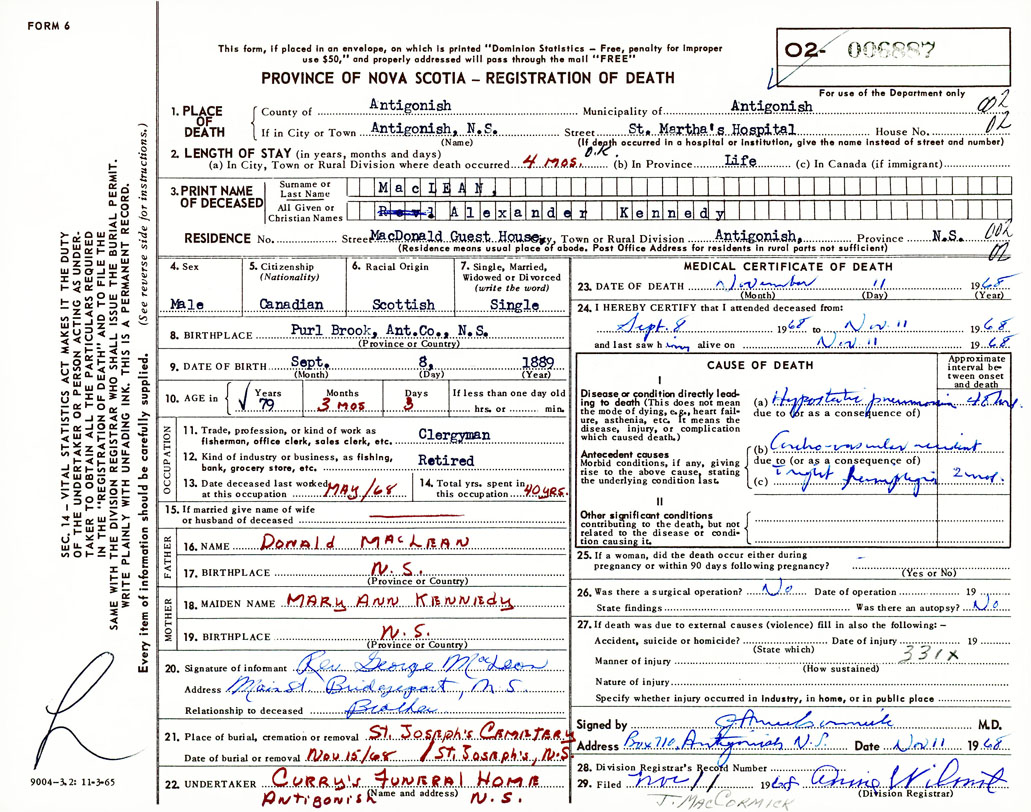 FORM 6
This form, if placed in an envelope, on which is printed "Dominion Statistics – Free, penalty for improper
use $50," and properly addressed will pass through the mail "FREE"
PROVINCE OF NOVA SCOTIA – REGISTRATION OF DEATH
O2- 006887
For use of the Department only
1. PLACE OF DEATH
County of Antigonish Municipality of Antigonish 002
If in City or Town Antigonish, N.S. Street St. Martha's Hospital House No. 02
(Name) (If death occurred in a hospital or institution, give the name instead of street and number)
2. LENGTH OF STAY (in years, months and days) O.K.
(a) In City, Town or Rural Division where death occurred 4 MOS. (b) In Province Life (c) In Canada (if immigrant)
3. PRINT NAME OF DECEASED
Surname or Last Name MacLEAN,
All Given or Christian Names Alexander Kennedy
RESIDENCE No. Street MacDonald Guest House, City, Town or Rural Division Antigonish, Province N.S. 002
(Residence means usual place of abode. Post Office Address for residents in rural parts not sufficient) 02
4. Sex
Male
5. Citizenship
(Nationality)
Canadian
6. Racial Origin
Scottish
7. Single, Married,
Widowed or Divorced
(write the word)
Single
8. BIRTHPLACE Purl Brook, Ant.Co., N.S.
(Province or Country)
9. DATE OF BIRTH Sept. 8, 1889
(Month) (Day) (Year)
10. AGE in
Years 79
Months 3 MOS
Days 3
If less than one day old
hrs. or min.
OCCUPATION
11. Trade, profession, or kind of work as
fisherman, office clerk, sales clerk, etc. Clergyman
12. Kind of industry or business, as fishing,
bank, grocery store, etc. Retired
13. Date deceased last worked
at this occupation MAY/68
14. Total yrs. spent in
this occupation 40 YRS.
15. If married give name of wife
or husband of deceased
FATHER
16. NAME DONALD MACLEAN
17. BIRTHPLACE N.S.
(Province or Country)
MOTHER
18. MAIDEN NAME MARY ANN KENNEDY
19. BIRTHPLACE N.S.
(Province or Country)
20. Signature of informant Rev. George MacLean
Address Main St Bridgeport, N.S.
Relationship to deceased Brother
21. Place of burial, cremation or removal ST. JOSEPH'S CEMETERY
Date of burial or removal NOV 15/68 / ST. JOSEPH'S, N.S.
22. UNDERTAKER CURRY'S FUNERAL HOME
(Name and address)
ANTIGONISH N.S.
MEDICAL CERTIFICATE OF DEATH
23. DATE OF DEATH November 11 1968
(Month) (Day) (Year)
24. I HEREBY CERTIFY that I attended deceased from:
Sept. 8 1968 to Nov. 11 1968
and last saw him alive on Nov 11 1968
CAUSE OF DEATH
Approximate
interval be-
tween onset
and death
I
Disease or condition directly lead-
ing to death (This does not mean
the mode of dying, e.g., heart fail-
ure, asthenia, etc. It means the
disease, injury, or complication
which caused death.)
(a) Hypostatic pneumonia 48 hrs
due to (or as a consequence of)
Antecedent causes
Morbid conditions, if any, giving
rise to the above cause, stating
the underlying condition last.
(b) Cerebro-vascular accident
due to (or as a consequence of)
(c) right hemiplegia 2 mos.
II
Other significant conditions
contributing to the death, but not
related to the disease or condi-
tion causing it.
25. If a woman, did the death occur either during
pregnancy or within 90 days following pregnancy? –
(Yes or No)
26. Was there a surgical operation? No Date of operation 19
State findings Was there an autopsy? No
27. If death was due to external causes (violence) fill in also the following: –
Accident, suicide or homicide? Date of injury 19
(State which) 331X
Manner of injury
(How sustained)
Nature of injury
Specify whether injury occurred in industry, in home, or in public place
Signed by M.D.
Address Box 710, Antigonish N.S. Date Nov 11 1968
28. Division Registrar's Record Number
29. Filed Nov 11 1968 Annie Wilmot
(Division Registrar)
J. MACCORMICK
SEC. 14 – VITAL STATISTICS ACT MAKES IT THE DUTY
OF THE UNDERTAKER OR PERSON ACTING AS UNDER-
TAKER TO OBTAIN ALL THE PARTICULARS REQUIRED
IN THE "REGISTRATION OF DEATH" AND TO FILE THE
SAME WITH THE DIVISION REGISTRAR WHO SHALL ISSUE THE BURIAL PERMIT.
WRITE PLAINLY WITH UNFADING INK. THIS IS A PERMANENT RECORD.
Every item of information should be carefully supplied. (See reverse side for instructions.)
9004–3.2: 11-3-65